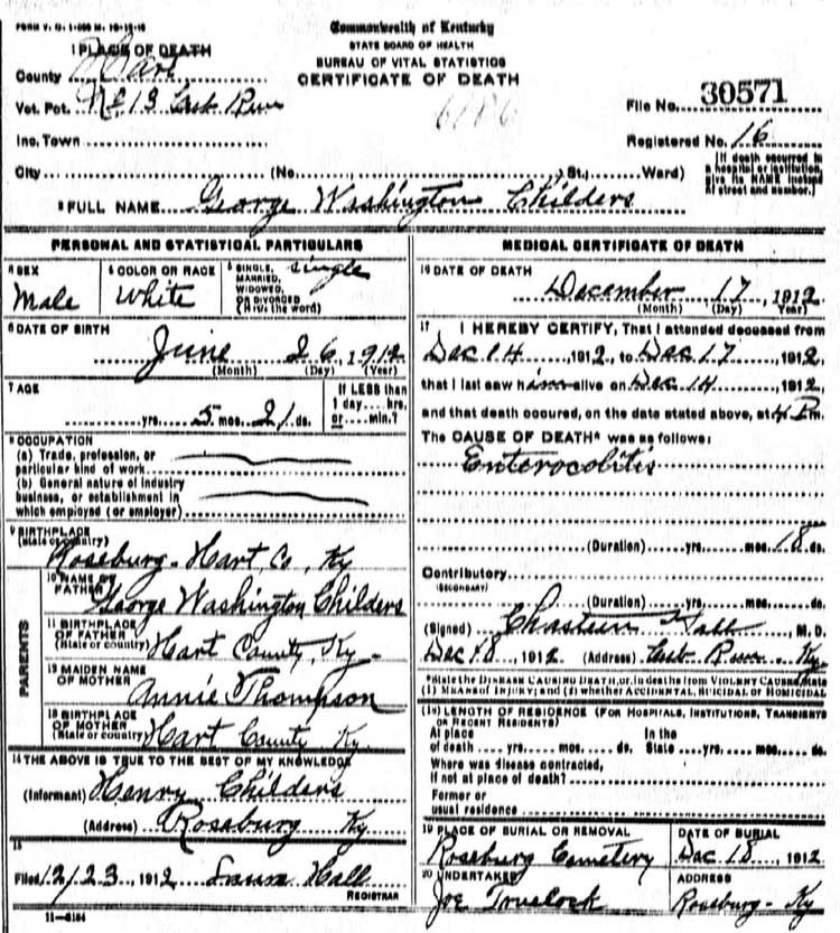 FORM V. S. 1-500 M. 10-18-10
Commonwealth of Kentucky
STATE BOARD OF HEALTH
BUREAU OF VITAL STATISTICS
CERTIFICATE OF DEATH
1 PLACE OF DEATH
County Hart
Vot. Pct. No 13 Cub Run
File No. 30571
Registered No. 16
Inc. Town
City (No. , St.; Ward)
[If death occurred in a hospital or institution, give its NAME instead of street and number.]
2 FULL NAME George Washington Childers
PERSONAL AND STATISTICAL PARTICULARS
3 SEX Male
4 COLOR OR RACE White
5 SINGLE, MARRIED, WIDOWED, OR DIVORCED (Write the word) Single
6 DATE OF BIRTH
June 26, 1912
(Month) (Day) (Year)
7 AGE
yrs. 5 mos. 21 ds.
If LESS than 1 day.... hrs. or.... min.?
8 OCCUPATION
(a) Trade, profession, or particular kind of work
(b) General nature of industry business, or establishment in which employed (or employer)
9 BIRTHPLACE (State or country)
Roseburg - Hart, Co, Ky
PARENTS
10 NAME OF FATHER George Washington Childers
11 BIRTHPLACE OF FATHER (State or country) Hart County, Ky -
12 MAIDEN NAME OF MOTHER Annie Thompson
13 BIRTHPLACE OF MOTHER (State or country) Hart County Ky.
14 THE ABOVE IS TRUE TO THE BEST OF MY KNOWLEDGE
(Informant) Henry Childers
(Address) Roseburg Ky
15
Filed 12/23, 1912 Laura Hall
REGISTRAR
11-6184
MEDICAL CERTIFICATE OF DEATH
16 DATE OF DEATH
December 17, 1912
(Month) (Day) Year)
17 I HEREBY CERTIFY, That I attended deceased from
Dec 14, 1912, to Dec 17, 1912,
that I last saw him alive on Dec 14, 1912,
and that death occured, on the date stated above, at 4 P.m.
The CAUSE OF DEATH* was as follows:
Enterocolitis
(Duration) yrs. mos. 18 ds.
Contributory
(SECONDARY)
(Duration) yrs. mos. ds.
(Signed) Chastain Hall, M. D.
Dec 18, 1912. (Address) Cub Run Ky.
*State the DISEASE CAUSING DEATH, or, in deaths from VIOLENT CAUSES, state (1) MEANS of INJURY; and (2) whether ACCIDENTAL, SUICIDAL or HOMICIDAL
(18) LENGTH OF RESIDENCE (FOR HOSPITALS, INSTITUTIONS, TRANSIENTS OR RECENT RESIDENTS)
At place of death .... yrs. .... mos. .... ds. In the State .... yrs. .... mos. .... ds.
Where was disease contracted, If not at place of death?
Former or usual residence
19 PLACE OF BURIAL OR REMOVAL Roseburg Cemetery
DATE OF BURIAL Dec 18, 1912
20 UNDERTAKER Joe Truelock
ADDRESS Roseburg - Ky